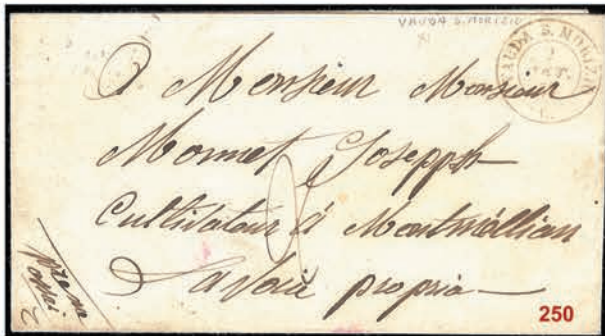 VAUDA S. MORIZIO
VAUDA S. MORIZIO
A Monsieur Monsieur
Monnet Josepph
Cultivateur à Montméllian
Savoie propria
250